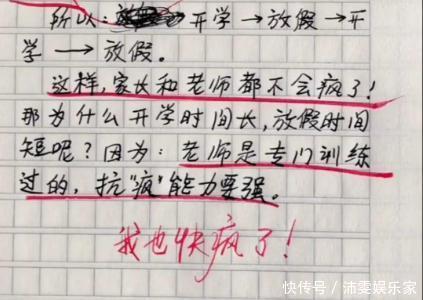 所以：开学→放假→开
学→放假。
这样,家长和老师都不会疯了!
那为什么开学时间长,放假时间
短呢?因为:老师是专门训练
过的,抗"疯"能力要强。
我也快疯了!
快传号/沛雯娱乐家